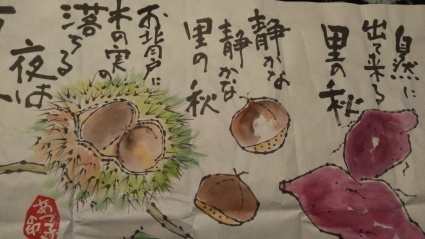 自然に
出て来る
里の秋
静かな
静かな
里の秋
お背戸に
木の実の
落ちる
夜は